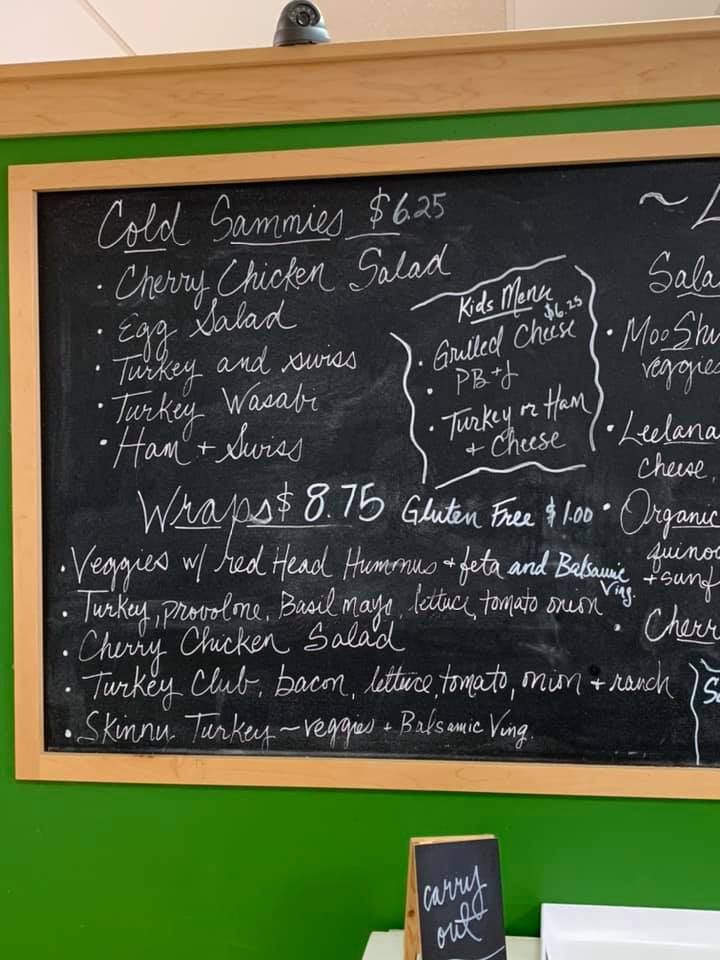 Cold Sammies $6.25
• Cherry Chicken Salad
• Egg Salad
• Turkey and swiss
• Turkey Wasabi
• Ham + Swiss
Kids Menu
$6.25
• Grilled Cheese
• PB+J
• Turkey or Ham
+ Cheese
Wraps $8.75 Gluten Free $1.00
• Veggies w/ red Head Hummus + feta and Balsamic
Ving.
• Turkey, provolone, Basil mayo, lettuce, tomato onion
• Cherry Chicken Salad
• Turkey Club, bacon, lettuce, tomato, onion + ranch
• Skinny Turkey – veggies + Balsamic Ving.
~ L
Sala
• Moo Shu
veggies
• Leelana
cheese,
• Organic
quino
+ sunf
• Cherr
S
carry
out